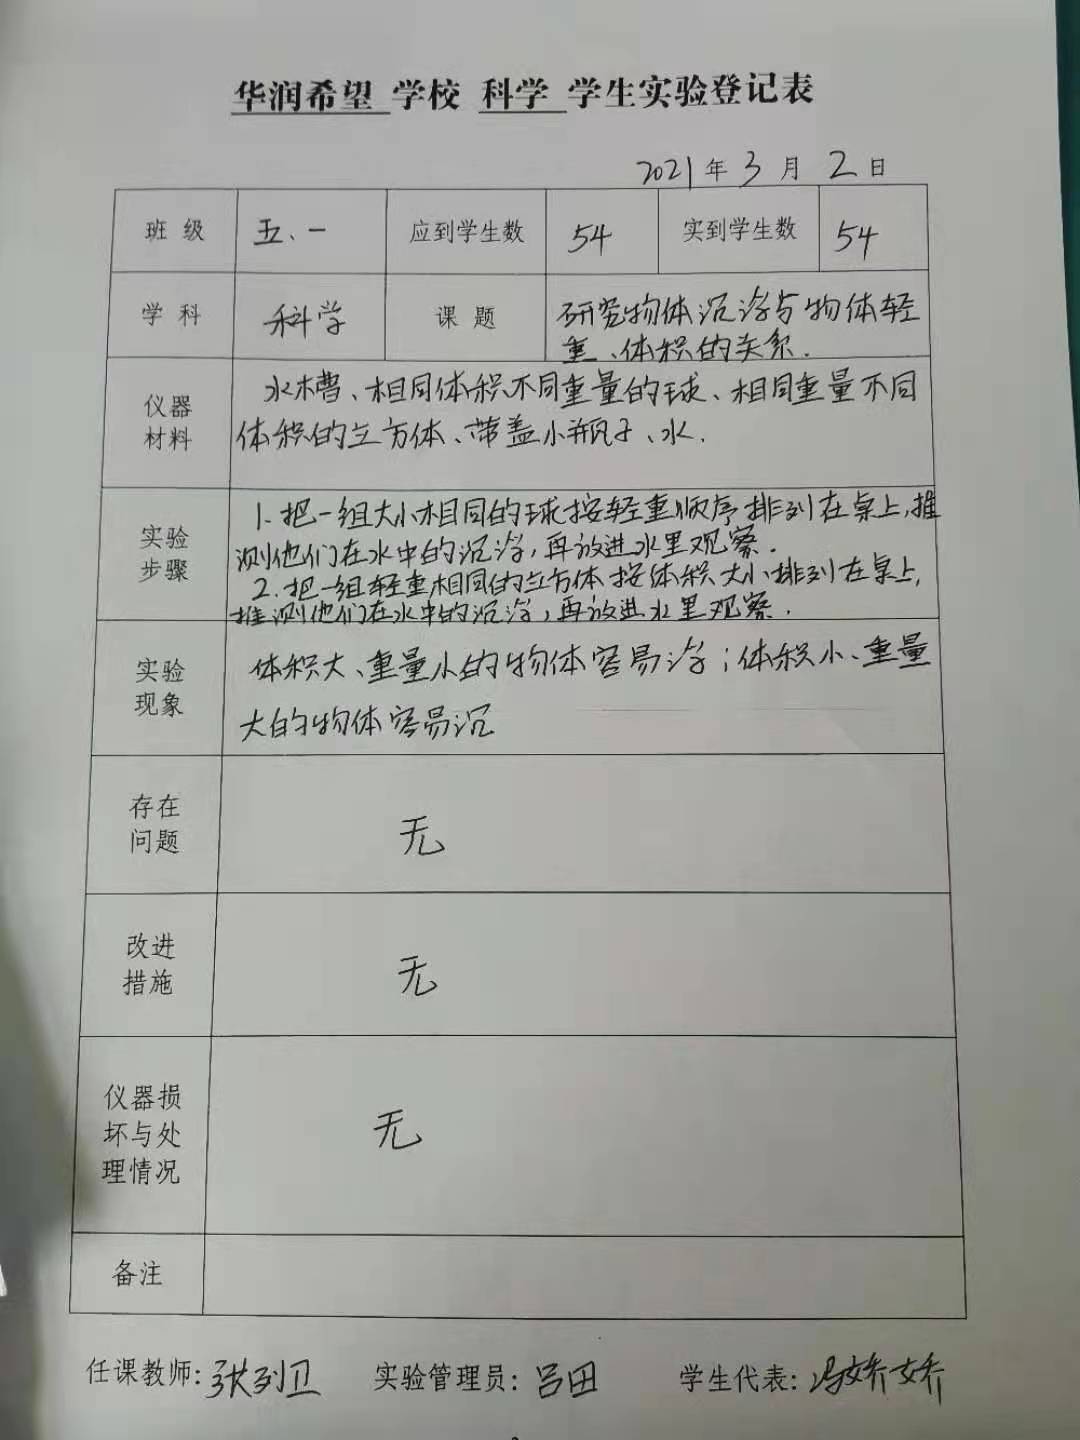 华润希望 学校 科学 学生实验登记表
2021年3月2日
班级 五、一 应到学生数 54 实到学生数 54
学科 科学 课题 研究物体沉浮与物体轻
重、体积的关系.
仪器
材料
水槽、相同体积不同重量的球、相同重量不同
体积的立方体、带盖小瓶子、水.
实验
步骤
1.把一组大小相同的球按轻重顺序排列在桌上,推
测他们在水中的沉浮,再放进水里观察.
2.把一组轻重相同的立方体按体积大小排列在桌上,
推测他们在水中的沉浮,再放进水里观察.
实验
现象
体积大、重量小的物体容易浮;体积小、重量
大的物体容易沉
存在
问题
无
改进
措施
无
仪器损
坏与处
理情况
无
备注
任课教师:张列卫 实验管理员:吕田 学生代表:冯娇娇